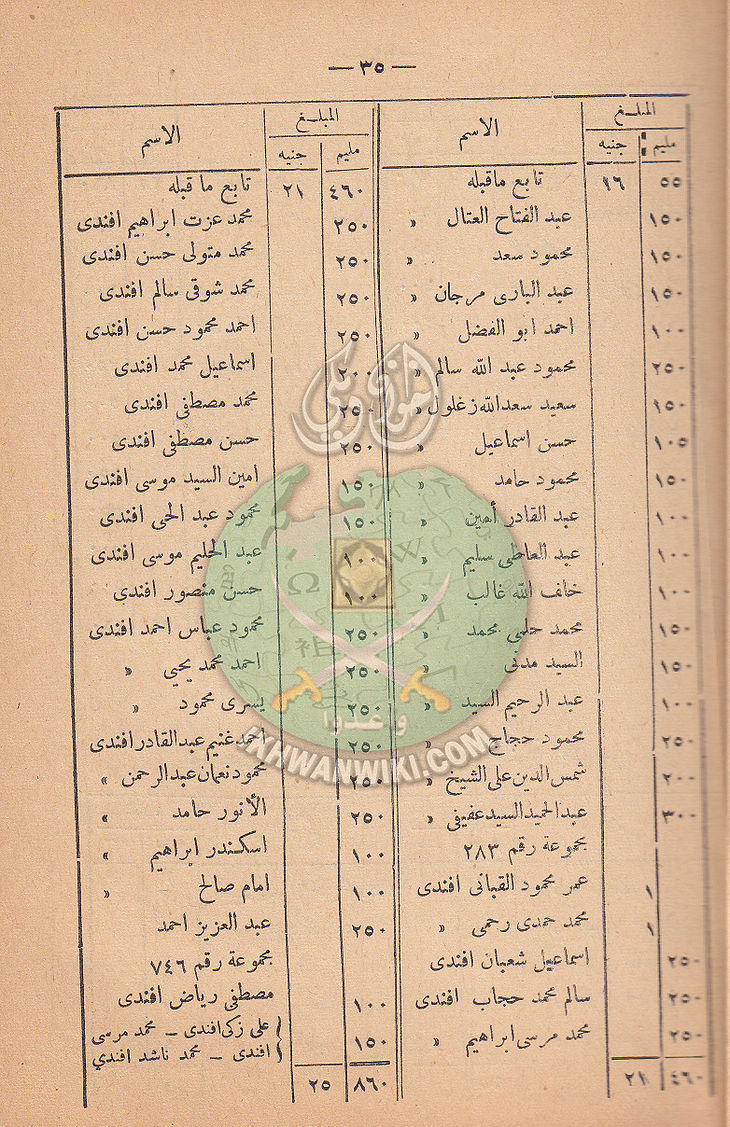 — ٣٥ —
المبلغ الاسم
مليم جنيه
٥٥ ١٦ تابع ماقبله
١٥٠ عبد الفتاح العتال »
١٥٠ محمود سعد »
١٥٠ عبد البارى مرجان »
١٠٠ احمد ابو الفضل »
٢٥٠ محمود عبد الله سالم »
١٥٠ سعيد سعد الله زغلول »
١٠٥ حسن اسماعيل »
١٥٠ محمود حامد »
١٠٠ عبد القادر أمين »
١٠٠ عبد العاطى سليم »
١٠٠ خلف الله غالب »
١٥٠ محمد حلمى محمد »
١٥٠ السيد مدنى »
١٠٠ عبد الرحيم السيد »
٢٥٠ محمود حجاج »
٢٠٠ شمس الدين على الشيخ »
٣٠٠ عبد الحميد السيد عفيفى »
مجموعة رقم ٢٨٣
١ عمر محمود القبانى افندى
١ محمد حمدى رحمى »
٢٥٠ اسماعيل شعبان افندى
٢٥٠ سالم محمد حجاب افندى
٢٥٠ محمد مرسى ابراهيم »
٤٦٠ ٢١
المبلغ الاسم
مليم جنيه
٤٦٠ ٢١ تابع ما قبله
٢٥٠ محمد عزت ابراهيم افندى
٢٥٠ محمد متولى حسن افندى
٢٥٠ محمد شوقى سالم افندى
٢٥٠ احمد محمود حسن افندى
٢٠٠ اسماعيل محمد افندى
٢٥٠ محمد مصطفى افندى
٢٥٠ حسن مصطفى افندى
١٥٠ امين السيد موسى افندى
١٥٠ محمود عبد الحى افندى
١٠٠ عبد الحليم موسى افندى
١٠٠ حسن منصور افندى
٢٥٠ محمود عباس احمد افندى
٢٥٠ احمد محمد يحيى »
٢٥٠ يسرى محمود »
٢٥٠ غنيم عبد القادر افندى
٢٥٠ محمود نعمان عبد الرحمن »
٢٥٠ الأنور حامد »
١٠٠ اسكندر ابراهيم »
١٠٠ امام صالح »
٢٥٠ عبد العزيز احمد
مجموعة رقم ٧٤٦
١٠٠ مصطفى رياض افندى
١٥٠ على زكى افندى – محمد مرسى
افندى – محمد ناشد افندي
٨٦٠ ٢٥
إخوان ويكي
وأعدوا
IKHWANWIKI.COM